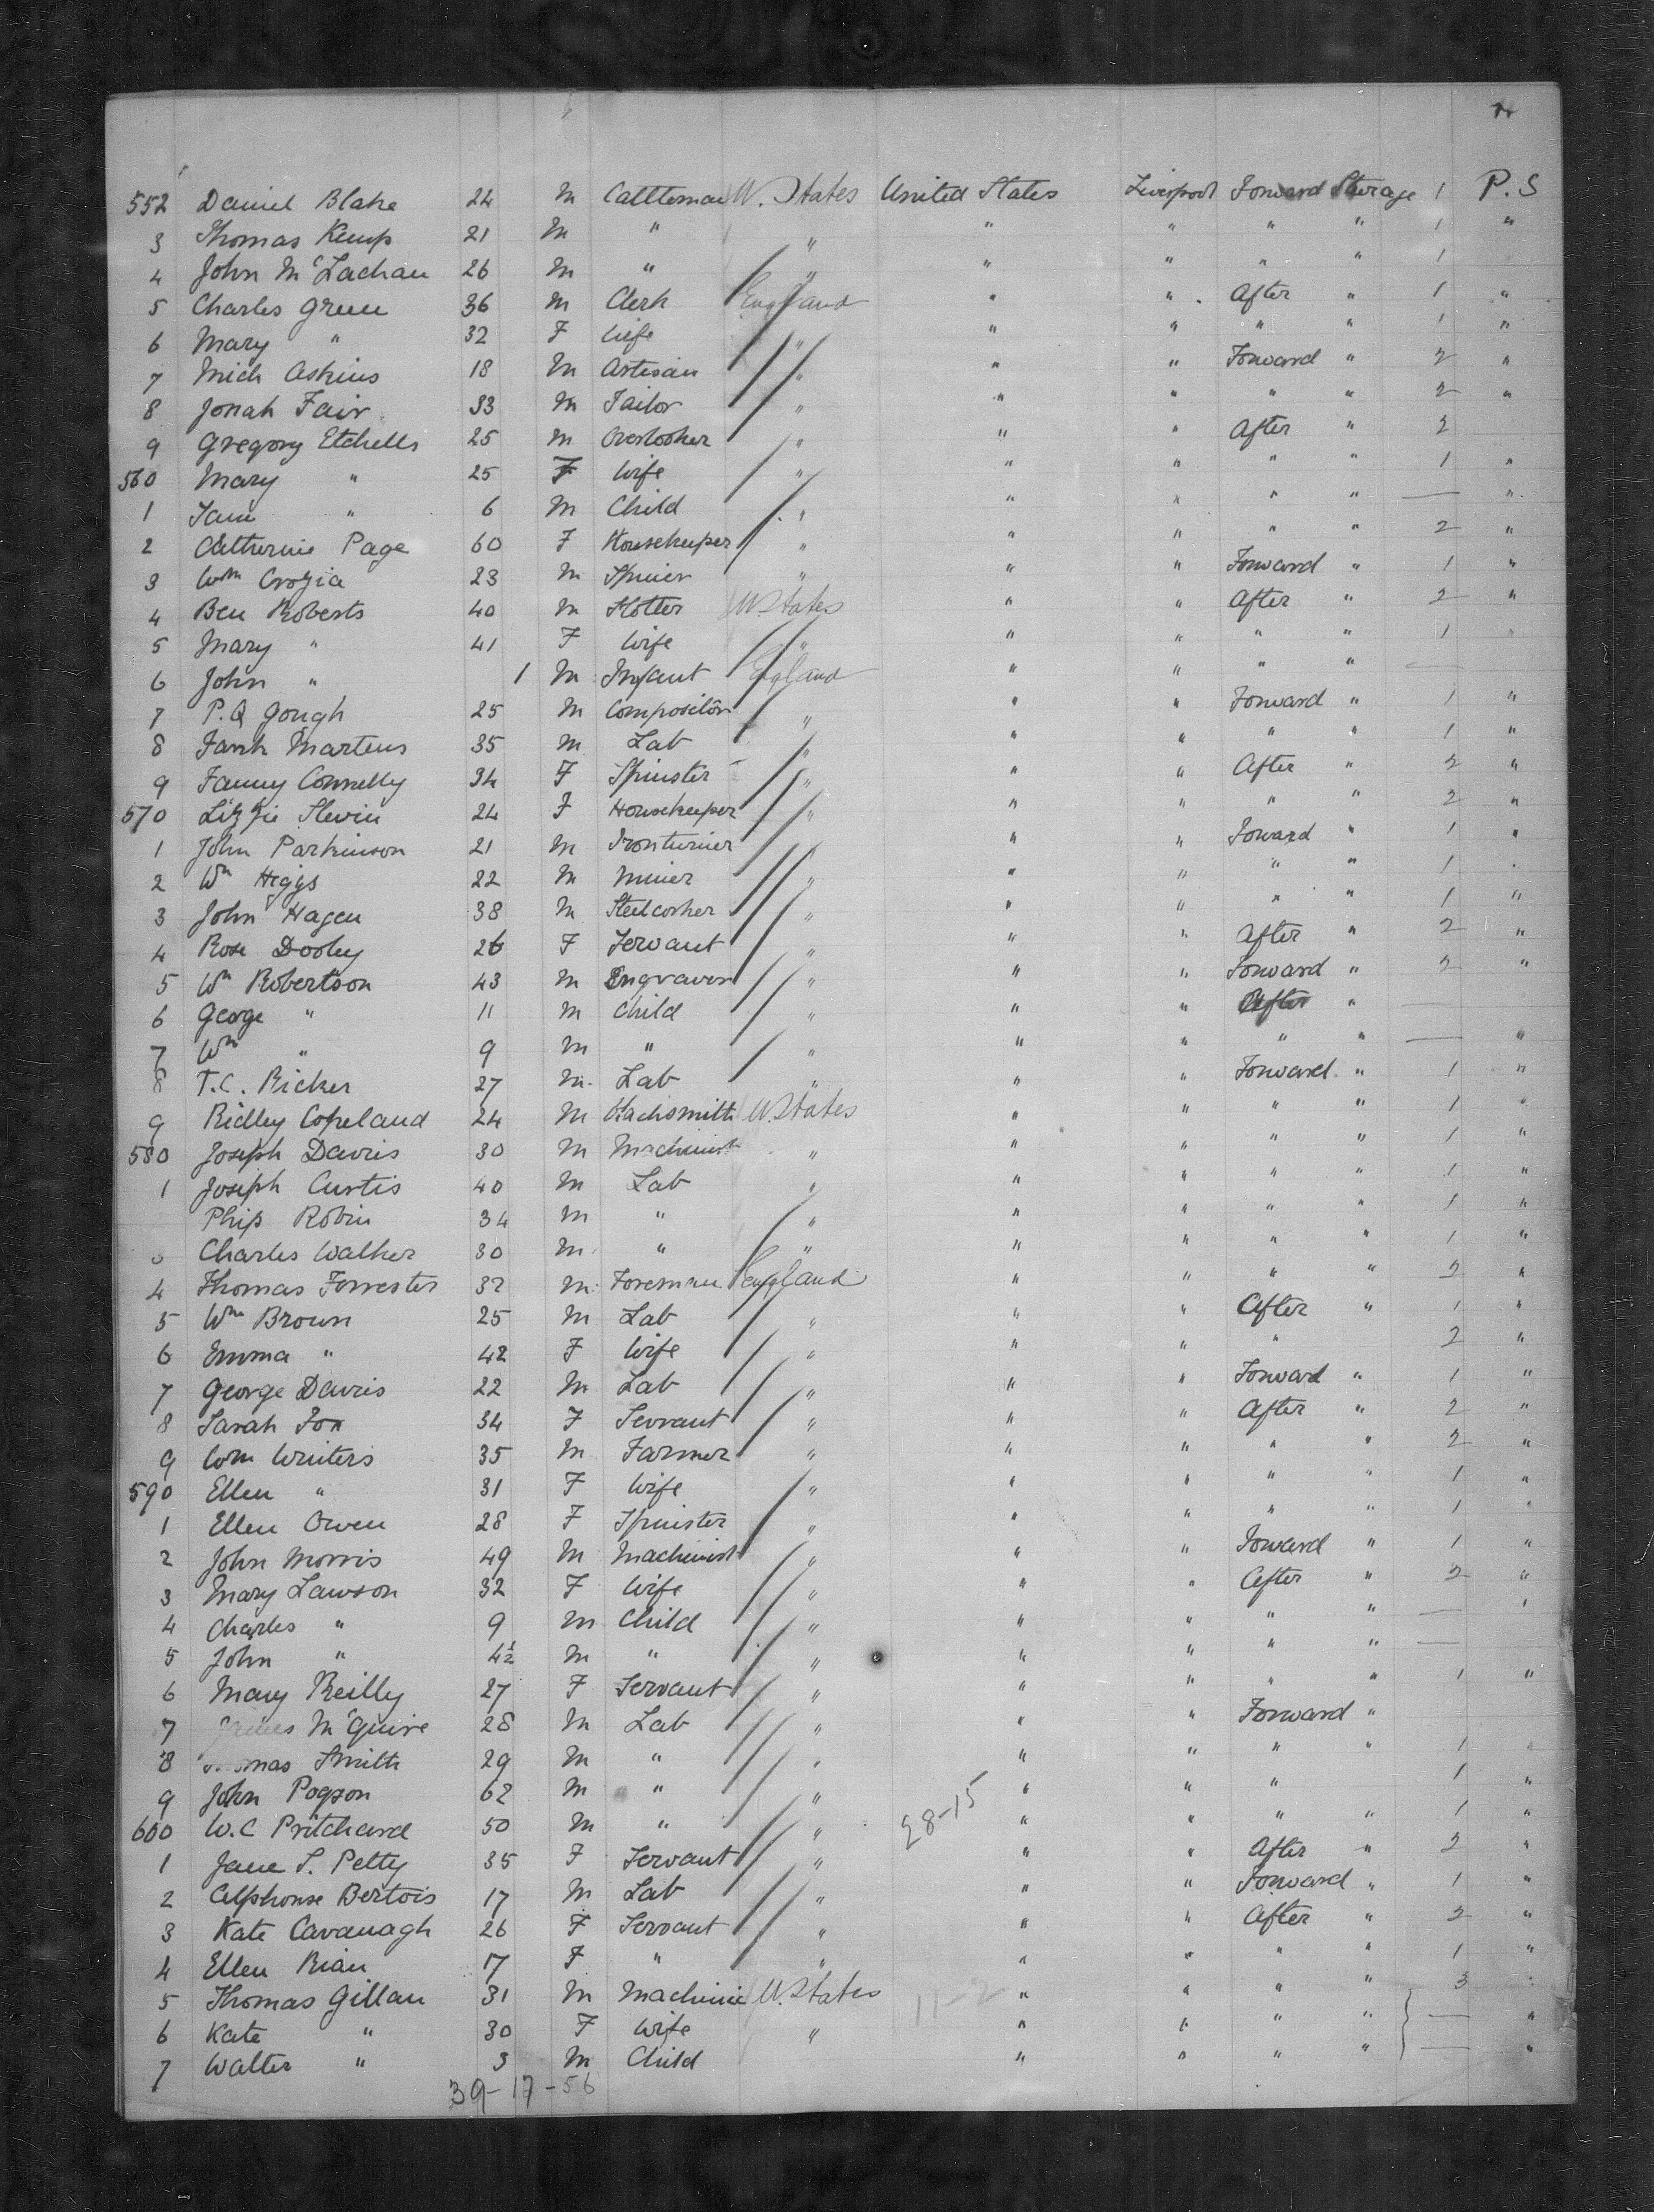 552 Daniel Blake 24 M Cattleman U. States United States Liverpool Forward Sterage 1 P.S
3 Thomas Kemp 21 M " " " " " " 1 "
4 John McLachan 26 M " " " " " " 1
5 Charles Green 36 M Clerk England " " After " 1 "
6 Mary " 32 F Wife " " " " " 1 "
7 Mich Askins 18 M Artisan " " " Forward " 2 "
8 Jonah Fair 33 M Tailor " " " " " 2 "
9 Gregory Etchells 25 M Overlooker " " " After " 2
560 Mary " 25 F Wife " " " " " 1 "
1 " 6 M Child " " " " " — "
2 Catherine Page 60 F Housekeeper " " " " " 2 "
3 Wm Crozia 23 M " " " Forward " 1 "
4 Ben Roberts 40 M Slotter U States " " After " 2 "
5 Mary " 41 F Wife " " " " " 1 "
6 John " 1 M Infant England " " " " —
7 P.Q Gough 25 M Compositor " " " Forward " 1 "
8 Frank Martens 35 M Lab " " " " " 1 "
9 Fanny Connelly 34 F Spinster " " " After " 2 "
570 Lizzie Slevin 24 F Housekeeper " " " " " 2 "
1 John Parkinson 21 M Ironturner " " " Forward " 1 "
2 Wm Higgs 22 M Miner " " " " " 1 "
3 John Hagen 38 M " " " " " 1 "
4 Rose Dooley 26 F Servant " " " After " 2 "
5 Wm Robertson 43 M Engraver " " " Forward " 2 "
6 George " 11 M Child " " " After " —
7 Wm " 9 M " " " " " " — "
8 T.C. Ricker 27 M Lab " " " Forward " 1 "
9 Ridley Copeland 24 M Blacksmith U. States " " " " 1 "
580 Joseph Davies 30 M Machinist " " " " " 1 "
1 Joseph Curtis 40 M Lab " " " " " 1 "
Phip Robin 34 M " " " " " " 1 "
3 Charles Walker 30 M " " " " " " 1 "
4 Thomas Forrester 32 M Foreman England " " " " 2 "
5 Wm Brown 25 M Lab " " " After " 1 "
6 Emma " 42 F Wife " " " " 2 "
7 George Davies 22 M Lab " " " Forward " 1 "
8 Sarah Fox 34 F Servant " " " After " 2 "
9 Wm Winters 35 M Farmer " " " " " 2 "
590 Ellen " 31 F Wife " " " " " 1 "
1 Ellen Owen 28 F Spinster " " " " " 1 "
2 John Morris 49 M Machinist " " " Forward " 1 "
3 Mary Lawson 32 F Wife " " " After " 2 "
4 Charles " 9 M Child " " " " " — "
5 John " 4½ M " " " " " " —
6 Mary Reilly 27 F Servant " " " " " 1 "
7 James McGuire 28 M Lab " " " Forward "
8 Thomas Smith 29 M " " " " " " 1 "
9 John Pogson 62 M " " " " " 1 "
28-15
600 W.C Pritchard 50 M " " " " " " 1 "
1 Jane S. Petty 35 F Servant " " " After " 2 "
2 Alphonse Bertois 17 M Lab " " " Forward " 1 "
3 Kate Cavanagh 26 F Servant " " " After " 2 "
4 Ellen Rian 17 F " " " " " " 1 "
5 Thomas Gillan 31 M Machinie U. States 11-2 " " " " 3 "
6 Kate " 30 F Wife " " " " " — "
7 Walter " 3 M Child " " " " — "
39-17-56